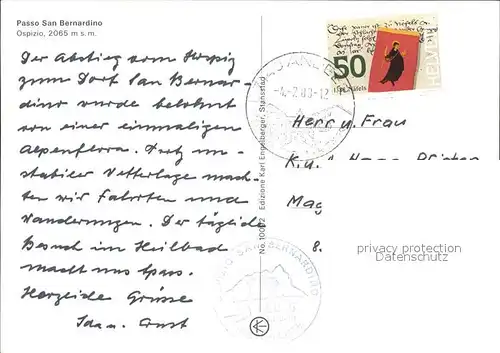 Passo San Bernardino
Ospizio, 2065 m s.m.
Der Abstieg vom Hospiz
zum Dorf San Bernar-
dino wurde belohnt
von einer einmaligen
Alpenflora. Trotz un-
stabiler Wetterlage mach-
ten wir Fahrten und
Wanderungen. Der tägliche
Besuch im Heilbad
macht uns Spass.
Herzliche Grüsse
Ida u. Ernst
No. 10092 Edizione Karl Engelberger, Stansstad
50
HELVETIA
SAN BERNARDINO
Herr u. Frau
K. u.
Mag
8.
privacy protection
Datenschutz